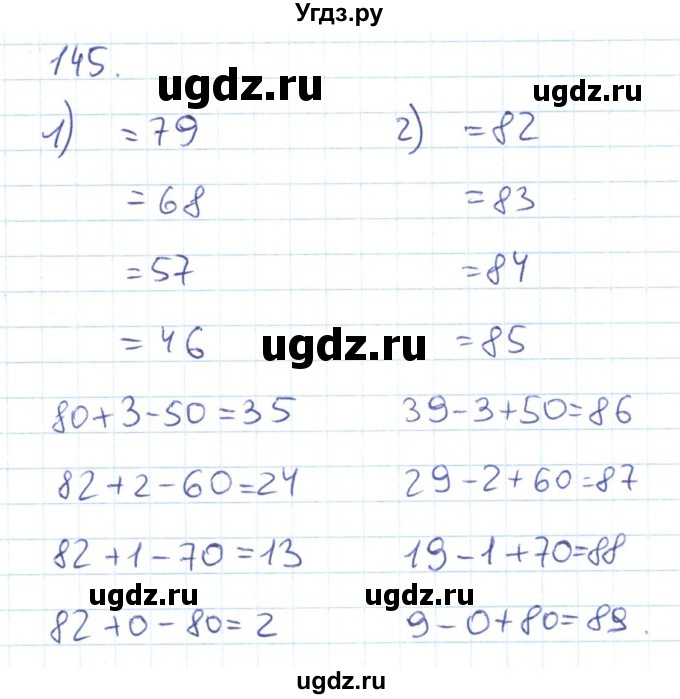 Угдз.ру
145.
ugdz.ru
ugdz.ru
1) =79
2) =82
=68
=83
=57
=84
=46
ugdz.ru
=85
80+3-50=35
39-3+50=86
82+2-60=24
29-2+60=87
82+1-70=13
19-1+70=88
ugdz.ru
ugdz.ru
82+0-80=2
9-0+80=89.
ugdz.ru